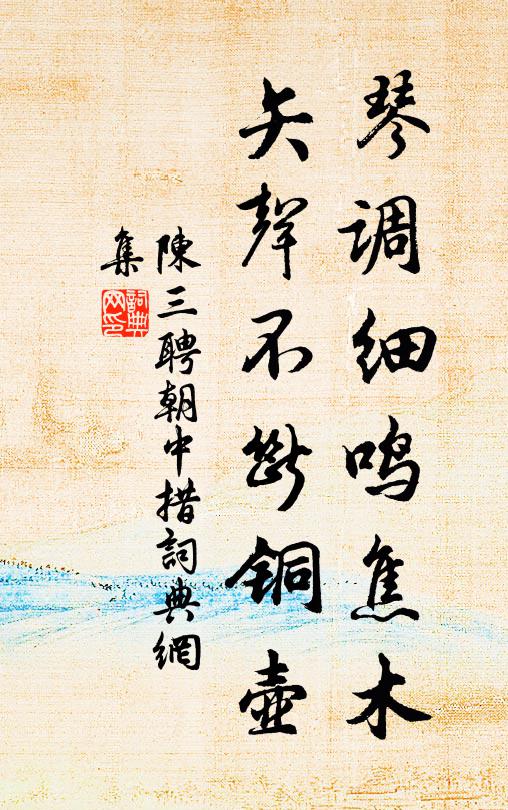 琴调细鸣焦木
矢聲不斷銅壺
陳三聘朝中措詞典網
集
詞典
网印